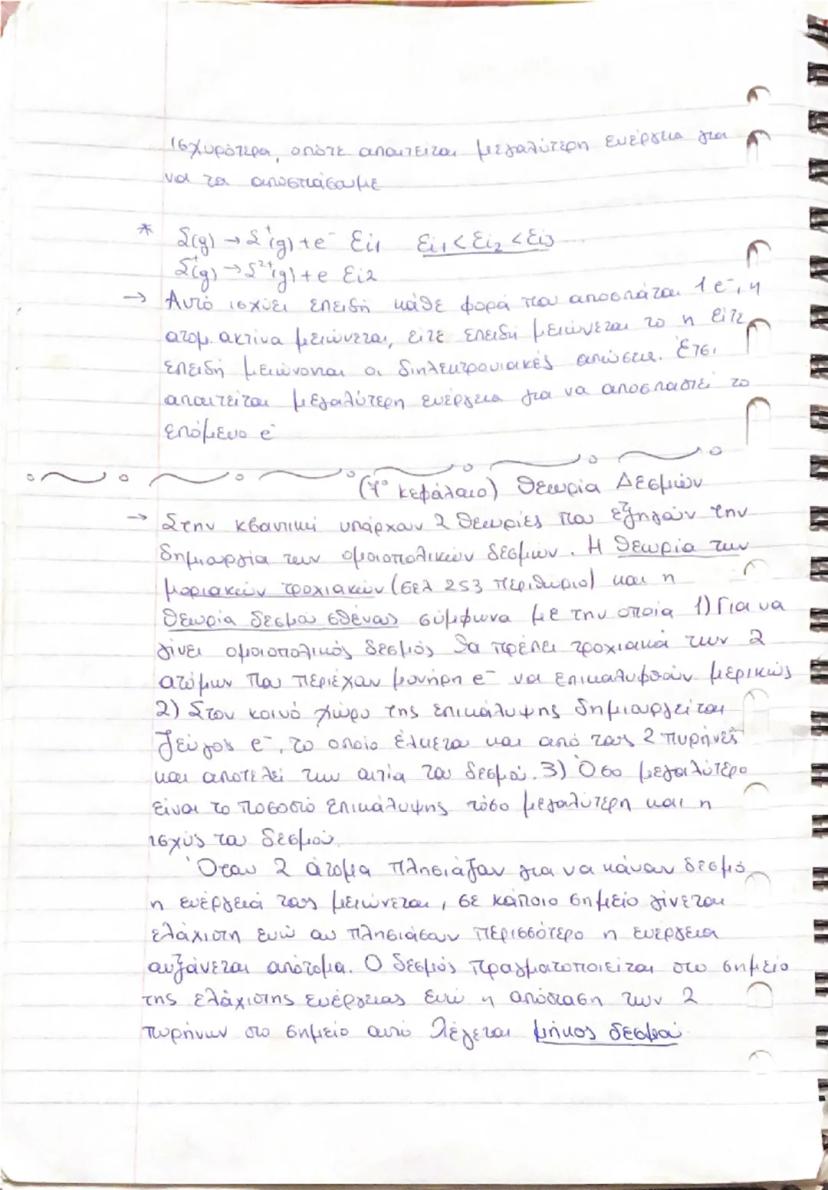 ισχυρότερα, οπότε απαιτείται μεγαλύτερη ενέργεια για
να τα αποσπάσουμε
* Σ(g) → Σ⁺(g) + e⁻ Ei1 Ei1 < Ei2 < Ei3
Σ⁺(g) → Σ²⁺(g) + e Ei2
→ Αυτό ισχύει επειδή κάθε φορά που αποσπάται 1 e⁻, η
ατομ. ακτίνα μειώνεται, είτε επειδή μειώνεται το n είτε
επειδή μειώνονται οι διηλεκτρονιακές απώσεις. Έτσι
απαιτείται μεγαλύτερη ενέργεια για να αποσπαστεί το
επόμενο e⁻
(7° κεφάλαιο) Θεωρία Δεσμών
→ Στην κβαντική υπάρχουν 2 θεωρίες που εξηγούν την
δημιουργία των ομοιοπολικών δεσμών. Η θεωρία των
μοριακών τροχιακών (σελ 253 περιθώριο) και η
θεωρία δεσμού σθένους σύμφωνα με την οποία 1) Για να
γίνει ομοιοπολικός δεσμός θα πρέπει τροχιακά των 2
ατόμων που περιέχουν μονήρη e⁻ να επικαλυφθούν μερικώς
2) Στον κοινό χώρο της επικάλυψης δημιουργείται
ζεύγος e⁻, το οποίο έλκεται και από τους 2 πυρήνες
και αποτελεί την αιτία του δεσμού. 3) Όσο μεγαλύτερο
είναι το ποσοστό επικάλυψης τόσο μεγαλύτερη και η
ισχύς του δεσμού.
Όταν 2 άτομα πλησιάζουν για να κάνουν δεσμό,
η ενέργειά τους μειώνεται, σε κάποιο σημείο γίνεται
ελάχιστη ενώ αν πλησιάσουν περισσότερο η ενέργεια
αυξάνεται απότομα. Ο δεσμός πραγματοποιείται στο σημείο
της ελάχιστης ενέργειας ενώ η απόσταση των 2
πυρήνων στο σημείο αυτό λέγεται μήκος δεσμού